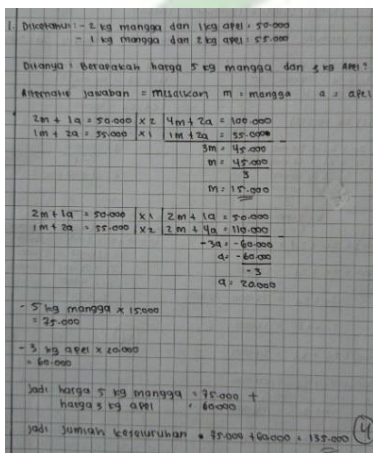 1. Diketahui : - 2 kg mangga dan 1 kg apel = 50.000
- 1 kg mangga dan 2 kg apel = 55.000
Ditanya : Berapakah harga 5 kg mangga dan 3 kg apel?
Alternatif jawaban = misalkan m = mangga a = apel
2m + 1a = 50.000 | x 2 | 4m + 2a = 100.000
1m + 2a = 55.000 | x 1 | 1m + 2a = 55.000 -
3m = 45.000
m = 45.000
3
m = 15.000
2m + 1a = 50.000 | x 1 | 2m + 1a = 50.000
1m + 2a = 55.000 | x 2 | 2m + 4a = 110.000 -
-3a = -60.000
a = -60.000
-3
a = 20.000
- 5 kg mangga x 15.000
= 75.000
- 3 kg apel x 20.000
= 60.000
Jadi harga 5 kg mangga = 75.000 +
harga 3 kg apel = 60.000
Jadi jumlah keseluruhan = 75.000 + 60.000 = 135.000 4